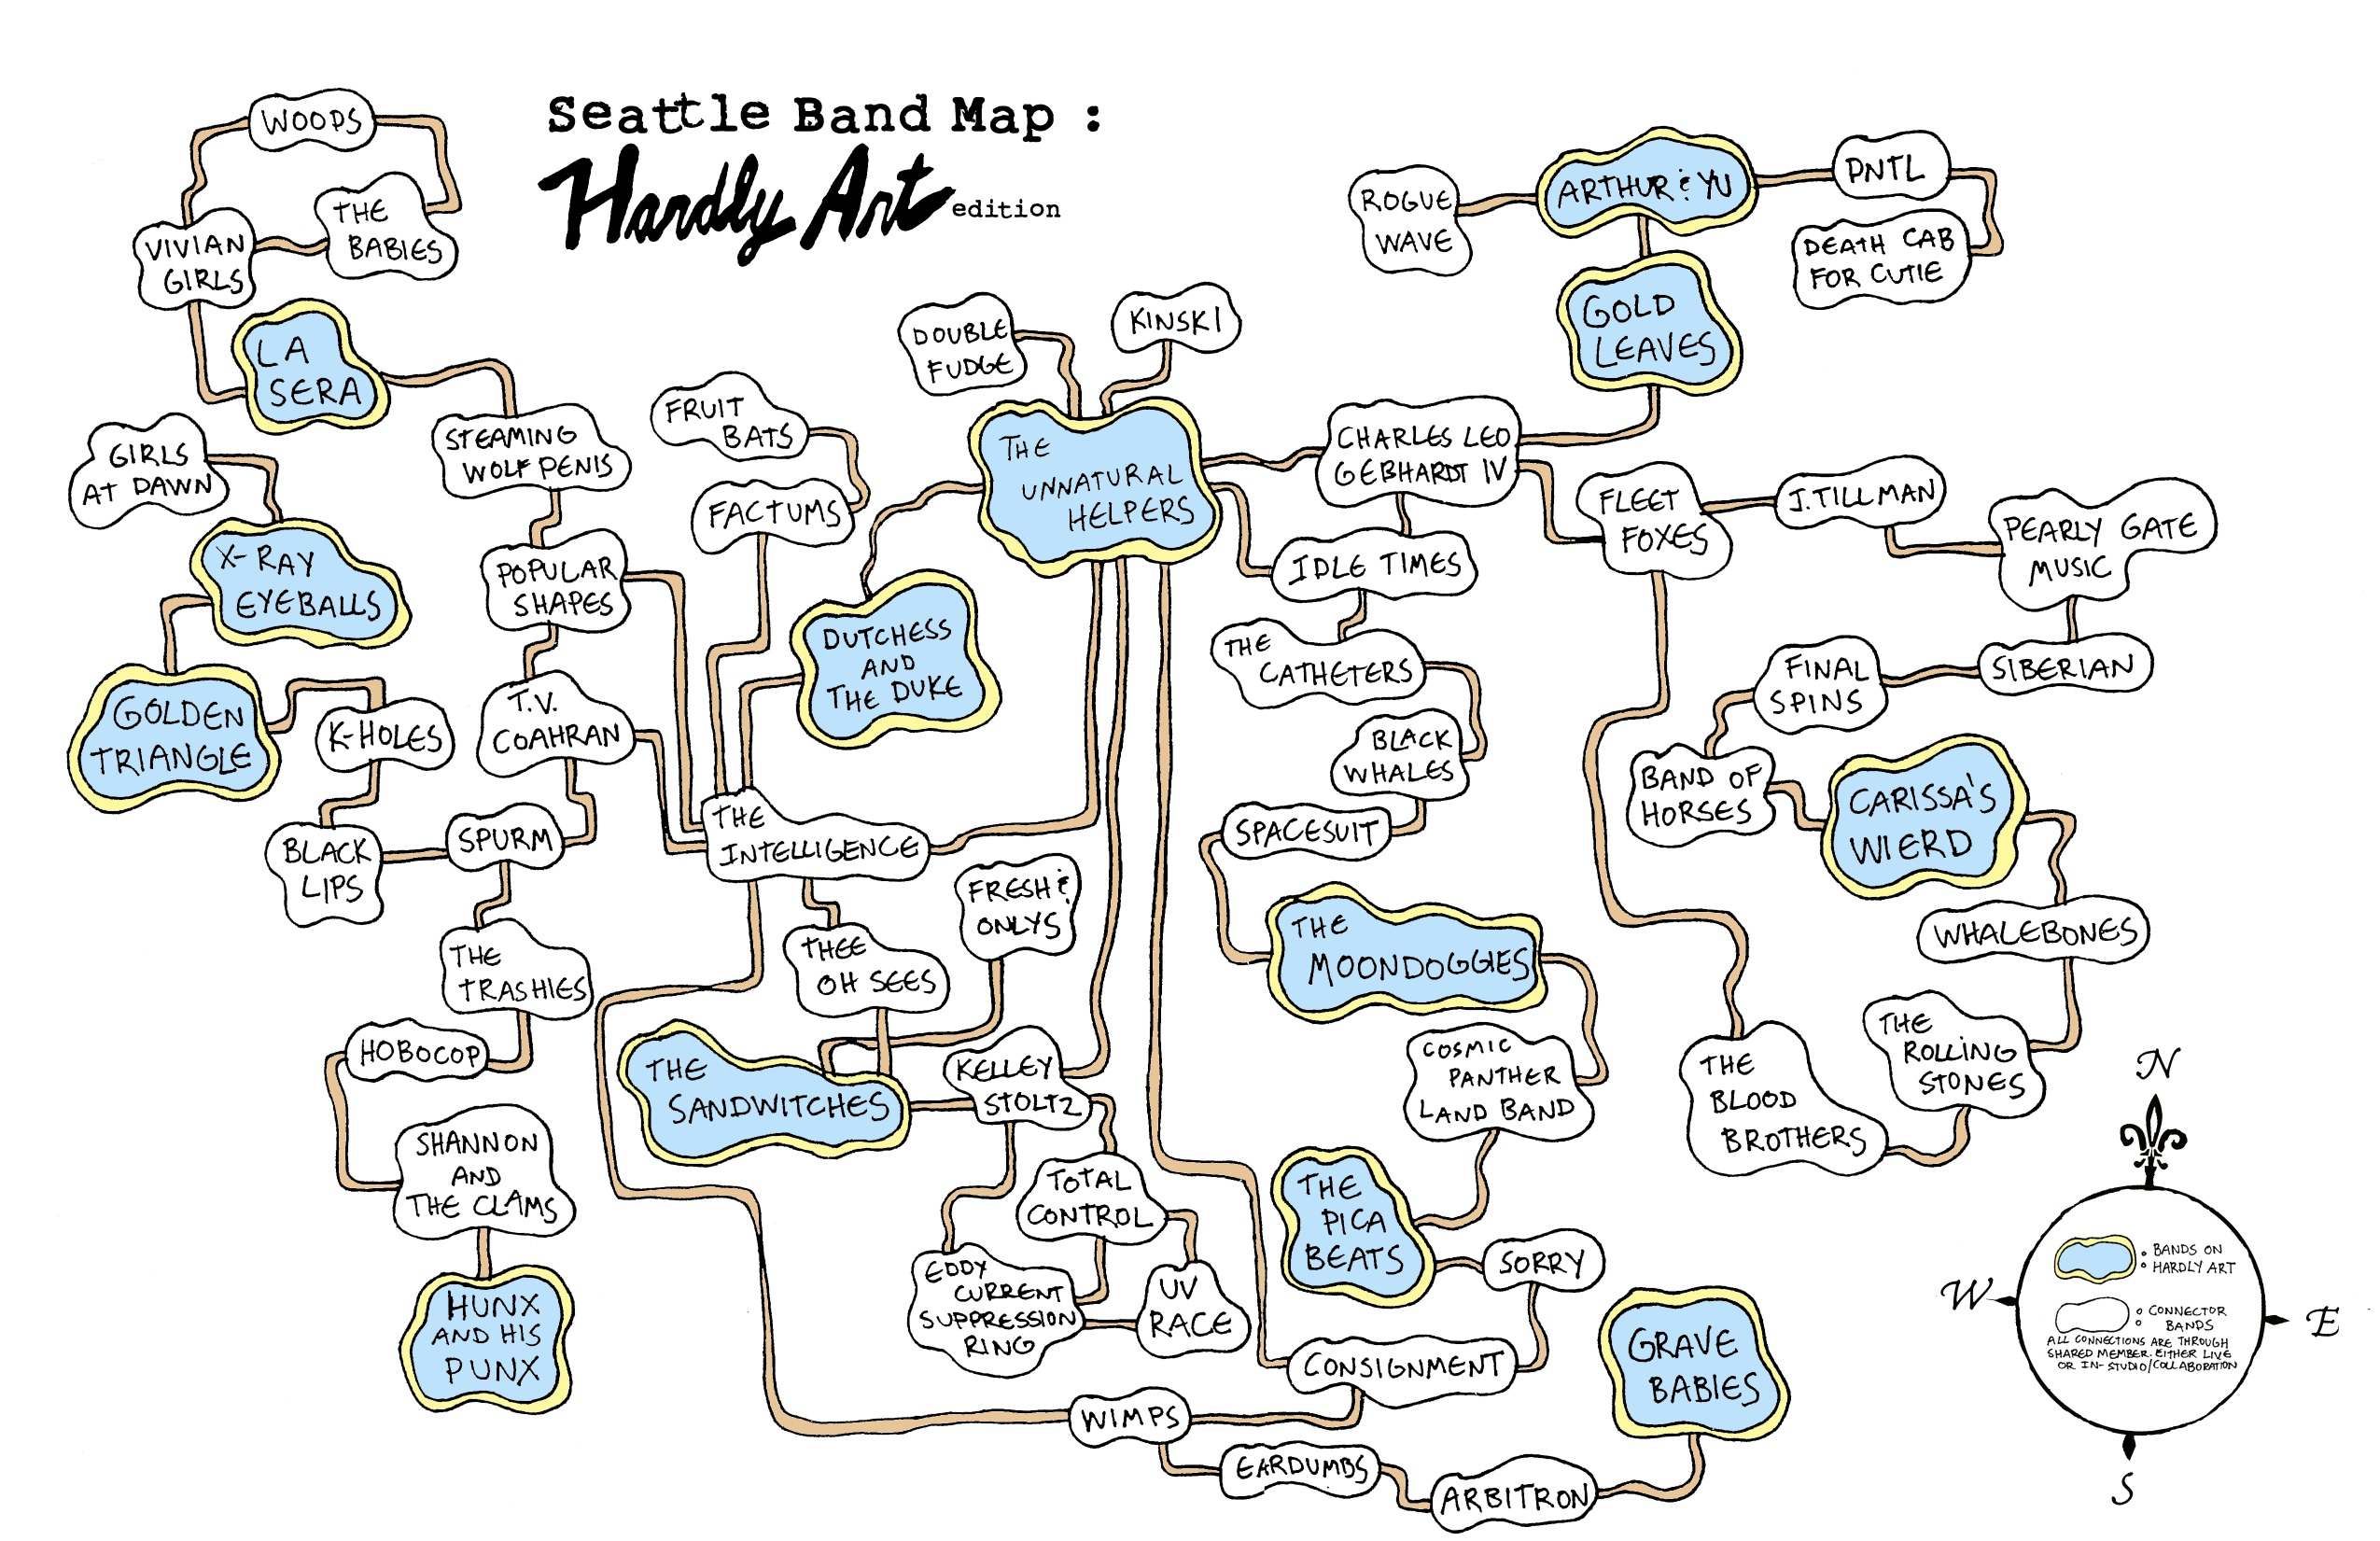 Seattle Band Map :
Hardly Art edition
WOOPS
THE
BABIES
VIVIAN
GIRLS
LA
SERA
GIRLS
AT DAWN
X-RAY
EYEBALLS
GOLDEN
TRIANGLE
K-HOLES
BLACK
LIPS
STEAMING
WOLF PENIS
POPULAR
SHAPES
T.V.
COAHRAN
SPURM
THE
TRASHIES
HOBOCOP
SHANNON
AND
THE CLAMS
HUNX
AND HIS
PUNX
FRUIT
BATS
FACTUMS
DUTCHESS
AND
THE DUKE
THE
INTELLIGENCE
THEE
OH SEES
FRESH &
ONLYS
THE
SANDWITCHES
KELLEY
STOLTZ
TOTAL
CONTROL
EDDY
CURRENT
SUPPRESSION
RING
UV
RACE
DOUBLE
FUDGE
KINSKI
THE
UNNATURAL
HELPERS
CHARLES LEO
GEBHARDT IV
IDLE TIMES
THE
CATHETERS
BLACK
WHALES
SPACESUIT
THE
MOONDOGGIES
COSMIC
PANTHER
LAND BAND
THE
PICA
BEATS
SORRY
CONSIGNMENT
WIMPS
EARDUMBS
ARBITRON
GRAVE
BABIES
ROGUE
WAVE
ARTHUR & YU
PNTL
DEATH CAB
FOR CUTIE
GOLD
LEAVES
FLEET
FOXES
J. TILLMAN
PEARLY GATE
MUSIC
SIBERIAN
FINAL
SPINS
BAND OF
HORSES
CARISSA'S
WIERD
WHALEBONES
THE
ROLLING
STONES
THE
BLOOD
BROTHERS
N
W
E
S
: BANDS ON
HARDLY ART
: CONNECTOR
BANDS
ALL CONNECTIONS ARE THROUGH
SHARED MEMBER. EITHER LIVE
OR IN-STUDIO/COLLABORATION